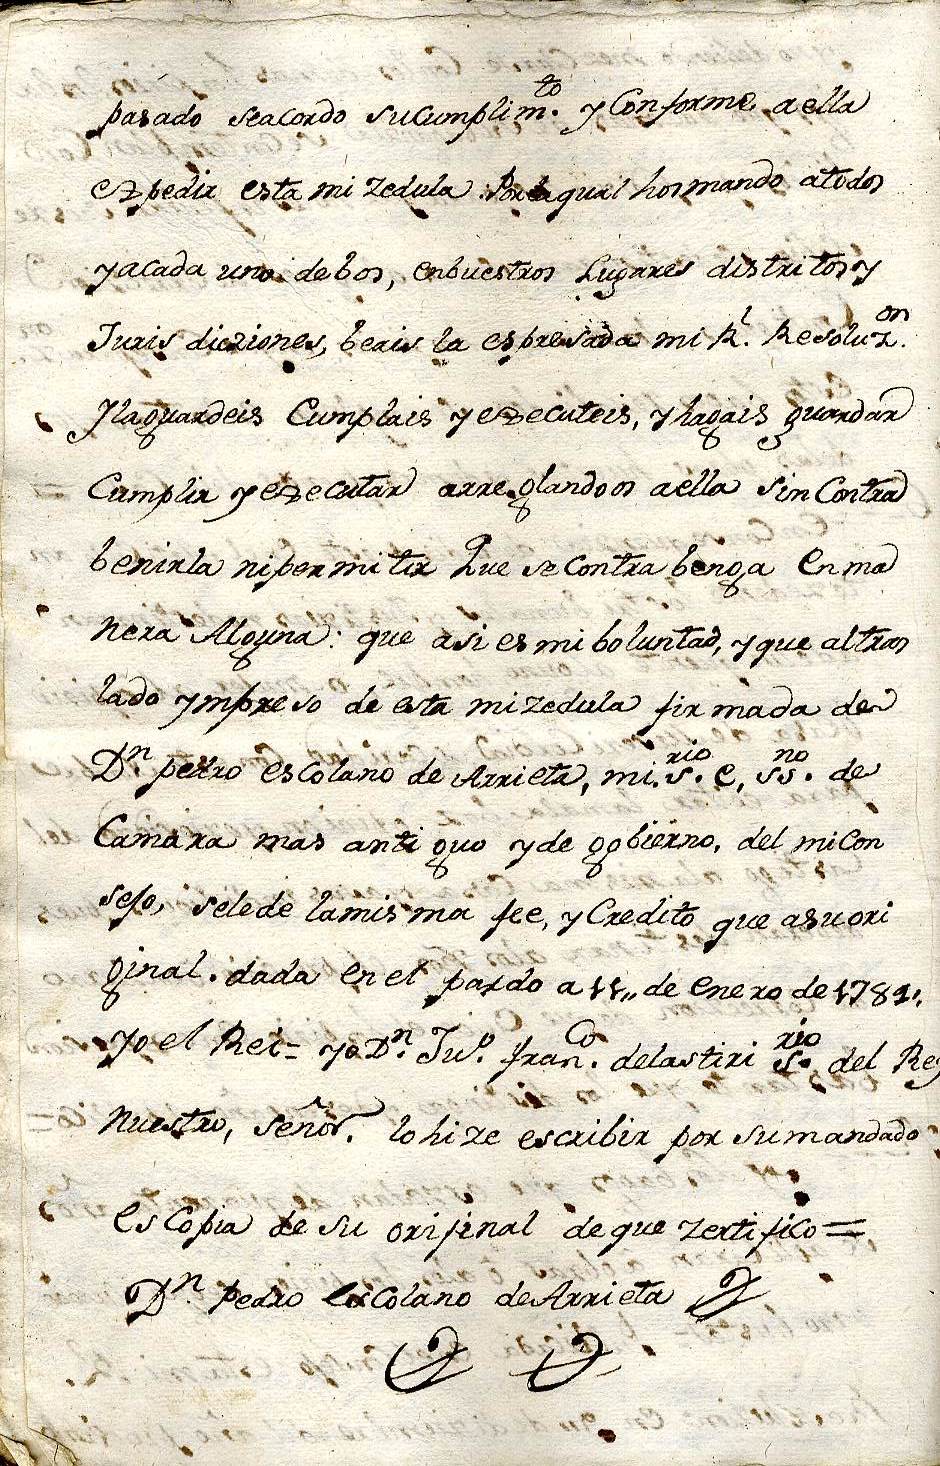 pasado seacordo sucumplim.to y Conforme aella
ezpedir esta mi zedula Porlaqual hosmando atodos
yacada uno debos, enbuestros Lugares distritos y
Juris dicziones, beais la espresada mi R.l Resoluz.on
Ylaguardeis Cumplais y ezecuteis, y hagais guardar
Cumplir y ezecutar arreglandoos aella sin Contra
benirla nipermitir Que se contra benga en ma
nera Alguna: que asi es mi boluntad, y que altras
lado ympreso de esta mi zedula firmada de
Dn pedro escolano de Arrieta, mi s.rio e, ss.no de
Camara mas antiguo y de gobierno, del mi Con
sejo, selede lamisma fee, y Credito que asu ori
ginal. dada en el pardo a 11,, de enero de 1781.,
Yo el Rei= yo Dn. Ju.o fran.co delastiri S.rio del Rey
nuestro, señor. lo hize escribir por su mandado
es Copia de su orijinal de que zertifico=
Dn pedro escolano de Arrieta